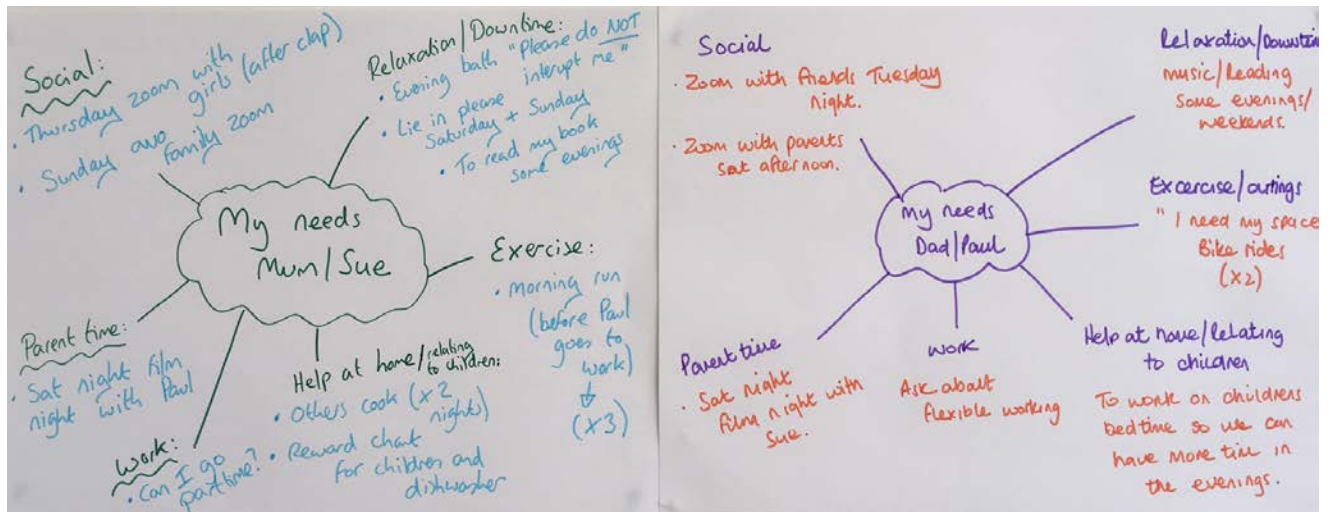 Social:
• Thursday zoom with
girls (after clap)
• Sunday avo
family zoom
Relaxation/Downtime:
• Evening bath "Please do NOT
interupt me"
• Lie in please
Saturday + Sunday
• To read my book
some evenings
My needs
Mum/Sue
Exercise:
• Morning run
(before Paul
goes to
work)
↓
(x3)
Parent time:
• Sat night film
night with Paul
Work:
• Can I go
part time?
Help at home/relating
to children:
• Others cook (x2
nights)
• Reward chart
for children and
dishwasher
Social
• Zoom with friends Tuesday
night.
• Zoom with parents
sat afternoon.
Relaxation/Downtim
Music/Reading
Some evenings/
weekends.
My needs
Dad/Paul
Excercise/outings
" I need my space
Bike rides
(x2)
Parent time
• Sat night
film night with
Sue.
Work
Ask about
flexible working
Help at home/Relating
to children
To work on childrens
bedtime so we can
have more time in
the evenings.